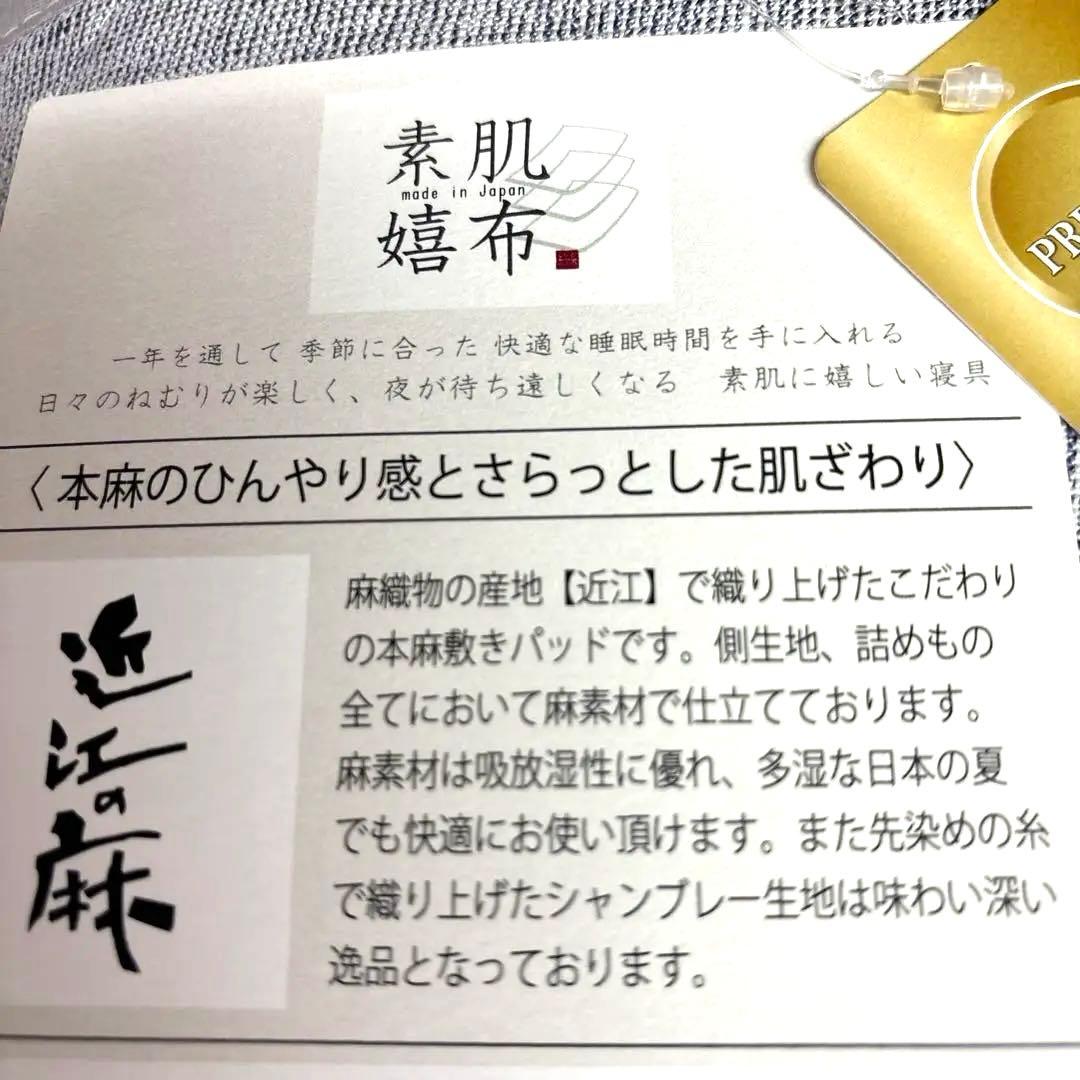 素肌
made in Japan
嬉布
一年を通して 季節に合った 快適な睡眠時間を手に入れる
日々のねむりが楽しく、夜が待ち遠しくなる　素肌に嬉しい寝具
〈本麻のひんやり感とさらっとした肌ざわり〉
近江の麻
麻織物の産地【近江】で織り上げたこだわり
の本麻敷きパッドです。側生地、詰めもの
全てにおいて麻素材で仕立てております。
麻素材は吸放湿性に優れ、多湿な日本の夏
でも快適にお使い頂けます。また先染めの糸
で織り上げたシャンブレー生地は味わい深い
逸品となっております。